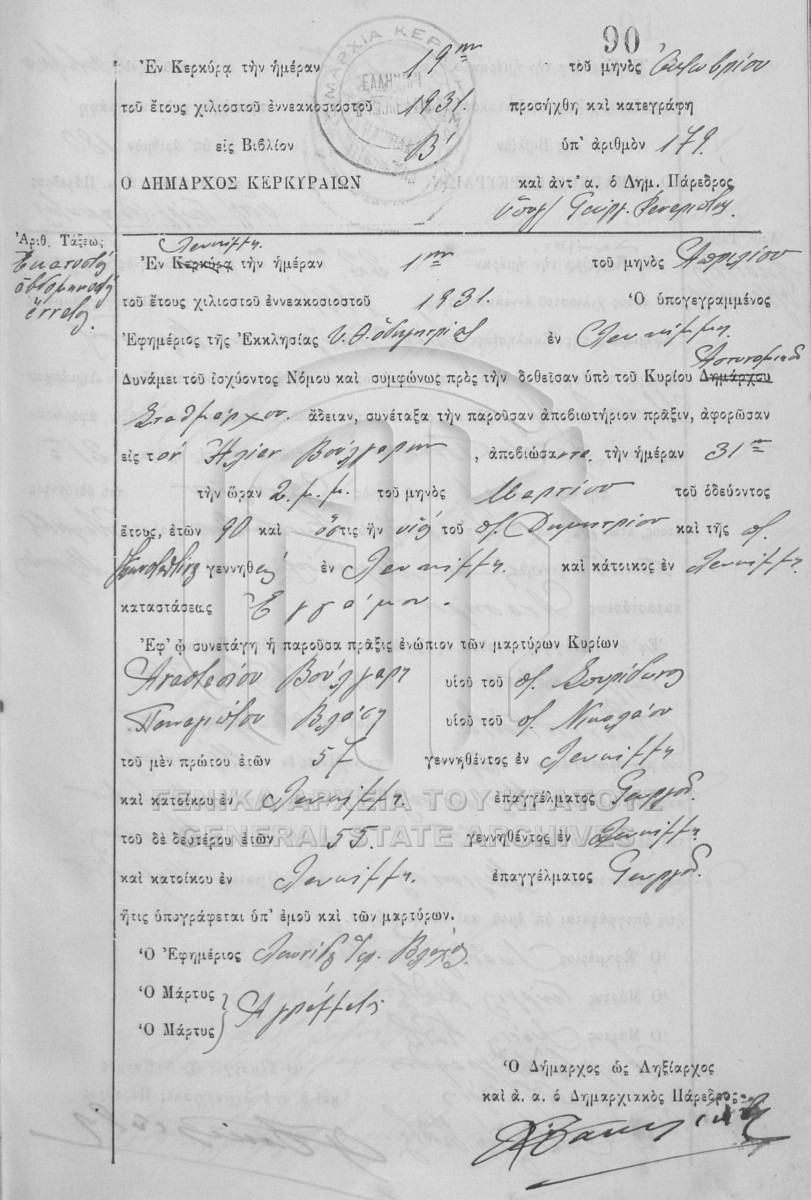 90
Ἐν Κερκύρᾳ τὴν ἡμέραν 19ην τοῦ μηνὸς Ὀκτωβρίου
τοῦ ἔτους χιλιοστοῦ ἐννεακοσιοστοῦ 1931. προσήχθη καὶ κατεγράφη
εἰς Βιβλίον Β΄ ὑπ' ἀριθμὸν 179.
Ο ΔΗΜΑΡΧΟΣ ΚΕΡΚΥΡΑΙΩΝ καὶ ἀντ' α. ὁ Δημ. Πάρεδρος
Ἀριθ. Τάξεως
Ἑκατοστὴ
ἑβδομηκοστὴ
ἐννάτη
Λευκίμμῃ.
Ἐν Κερκύρᾳ τὴν ἡμέραν 1ην τοῦ μηνὸς Ἀπριλίου
τοῦ ἔτους χιλιοστοῦ ἐννεακοσιοστοῦ 1931. Ὁ ὑπογεγραμμένος
Ἐφημέριος τῆς Ἐκκλησίας Υ. Θ. Ὁδηγητρίας ἐν Λευκίμμῃ.
Ἀστυνομικοῦ
Δυνάμει τοῦ ἰσχύοντος Νόμου καὶ συμφώνως πρὸς τὴν δοθεῖσαν ὑπὸ τοῦ Κυρίου Δημάρχου
Σταθμάρχου. ἄδειαν, συνέταξα τὴν παροῦσαν ἀποβιωτήριον πρᾶξιν, ἀφορῶσαν
εἰς τὸν Ἠλίαν Βούλγαρην, ἀποβιώσαντα τὴν ἡμέραν 31ην
τὴν ὥραν 2 μ. μ. τοῦ μηνὸς Μαρτίου τοῦ ὁδεύοντος
ἔτους, ἐτῶν 90 καὶ ὅστις ἦν υἱὸς τοῦ π. Δημητρίου καὶ τῆς π.
γεννηθεὶς ἐν Λευκίμμῃ. καὶ κάτοικος ἐν Λευκίμμῃ
καταστάσεως Ἐγγάμου.
Ἐφ' ᾧ συνετάγη ἡ παροῦσα πρᾶξις ἐνώπιον τῶν μαρτύρων Κυρίων
Ἀναστασίου Βούλγαρη υἱοῦ τοῦ π. Σπυρίδωνος
Παναγιώτου Βλάση υἱοῦ τοῦ π. Νικολάου
τοῦ μὲν πρώτου ἐτῶν γεννηθέντος ἐν Λευκίμμῃ
καὶ κατοίκου ἐν Λευκίμμῃ. ἐπαγγέλματος Γεωργοῦ.
ΓΕΝΙΚΑ ΑΡΧΕΙΑ ΤΟΥ ΚΡΑΤΟΥΣ
GENERAL STATE ARCHIVES
τοῦ δὲ δευτέρου ἐτῶν 55. γεννηθέντος ἐν Λευκίμμῃ
καὶ κατοίκου ἐν Λευκίμμῃ. ἐπαγγέλματος Γεωργοῦ.
ἥτις ὑπογράφεται ὑπ' ἐμοῦ καὶ τῶν μαρτύρων.
Ὁ Ἐφημέριος
Ὁ Μάρτυς
Ὁ Μάρτυς
Ἀγράμματοι
Ὁ Δήμαρχος ὡς Ληξίαρχος
καὶ ἀ. α. ὁ Δημαρχιακὸς Πάρεδρος